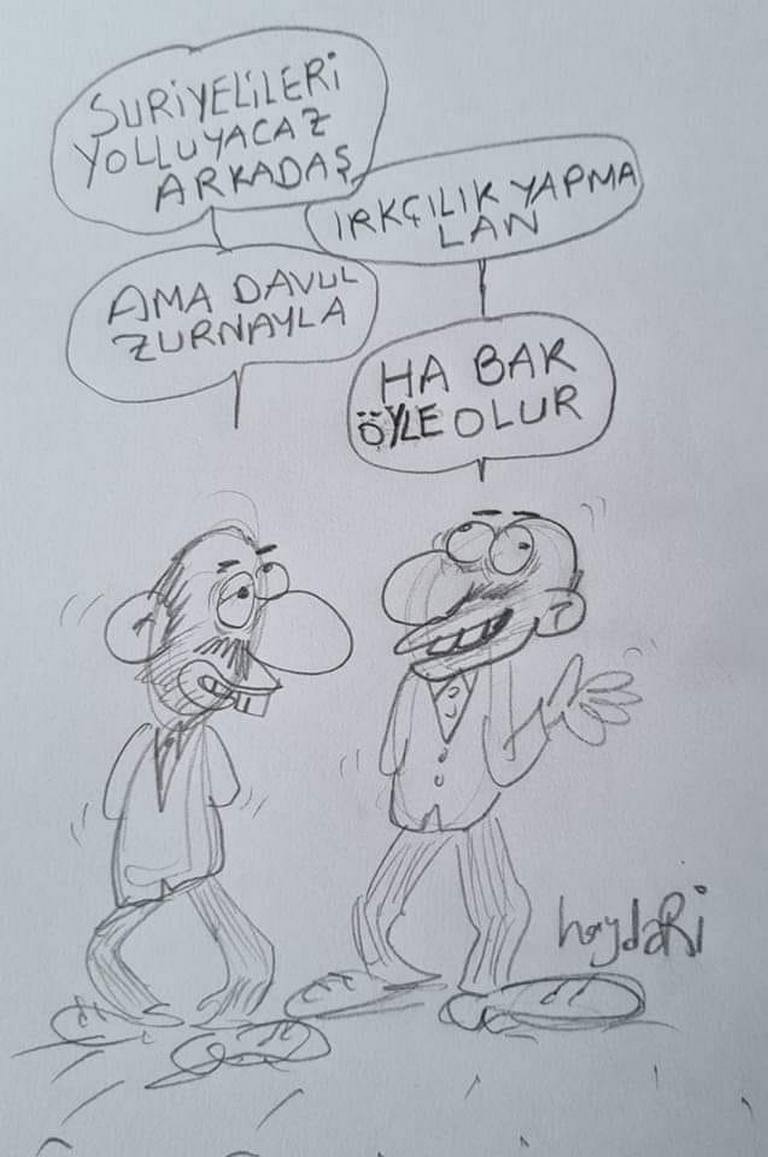 SURİYELİLERİ
YOLLUYACAZ
ARKADAŞ
IRKÇILIK YAPMA
LAN
AMA DAVUL
ZURNAYLA
HA BAK
ÖYLE OLUR
haydaRi